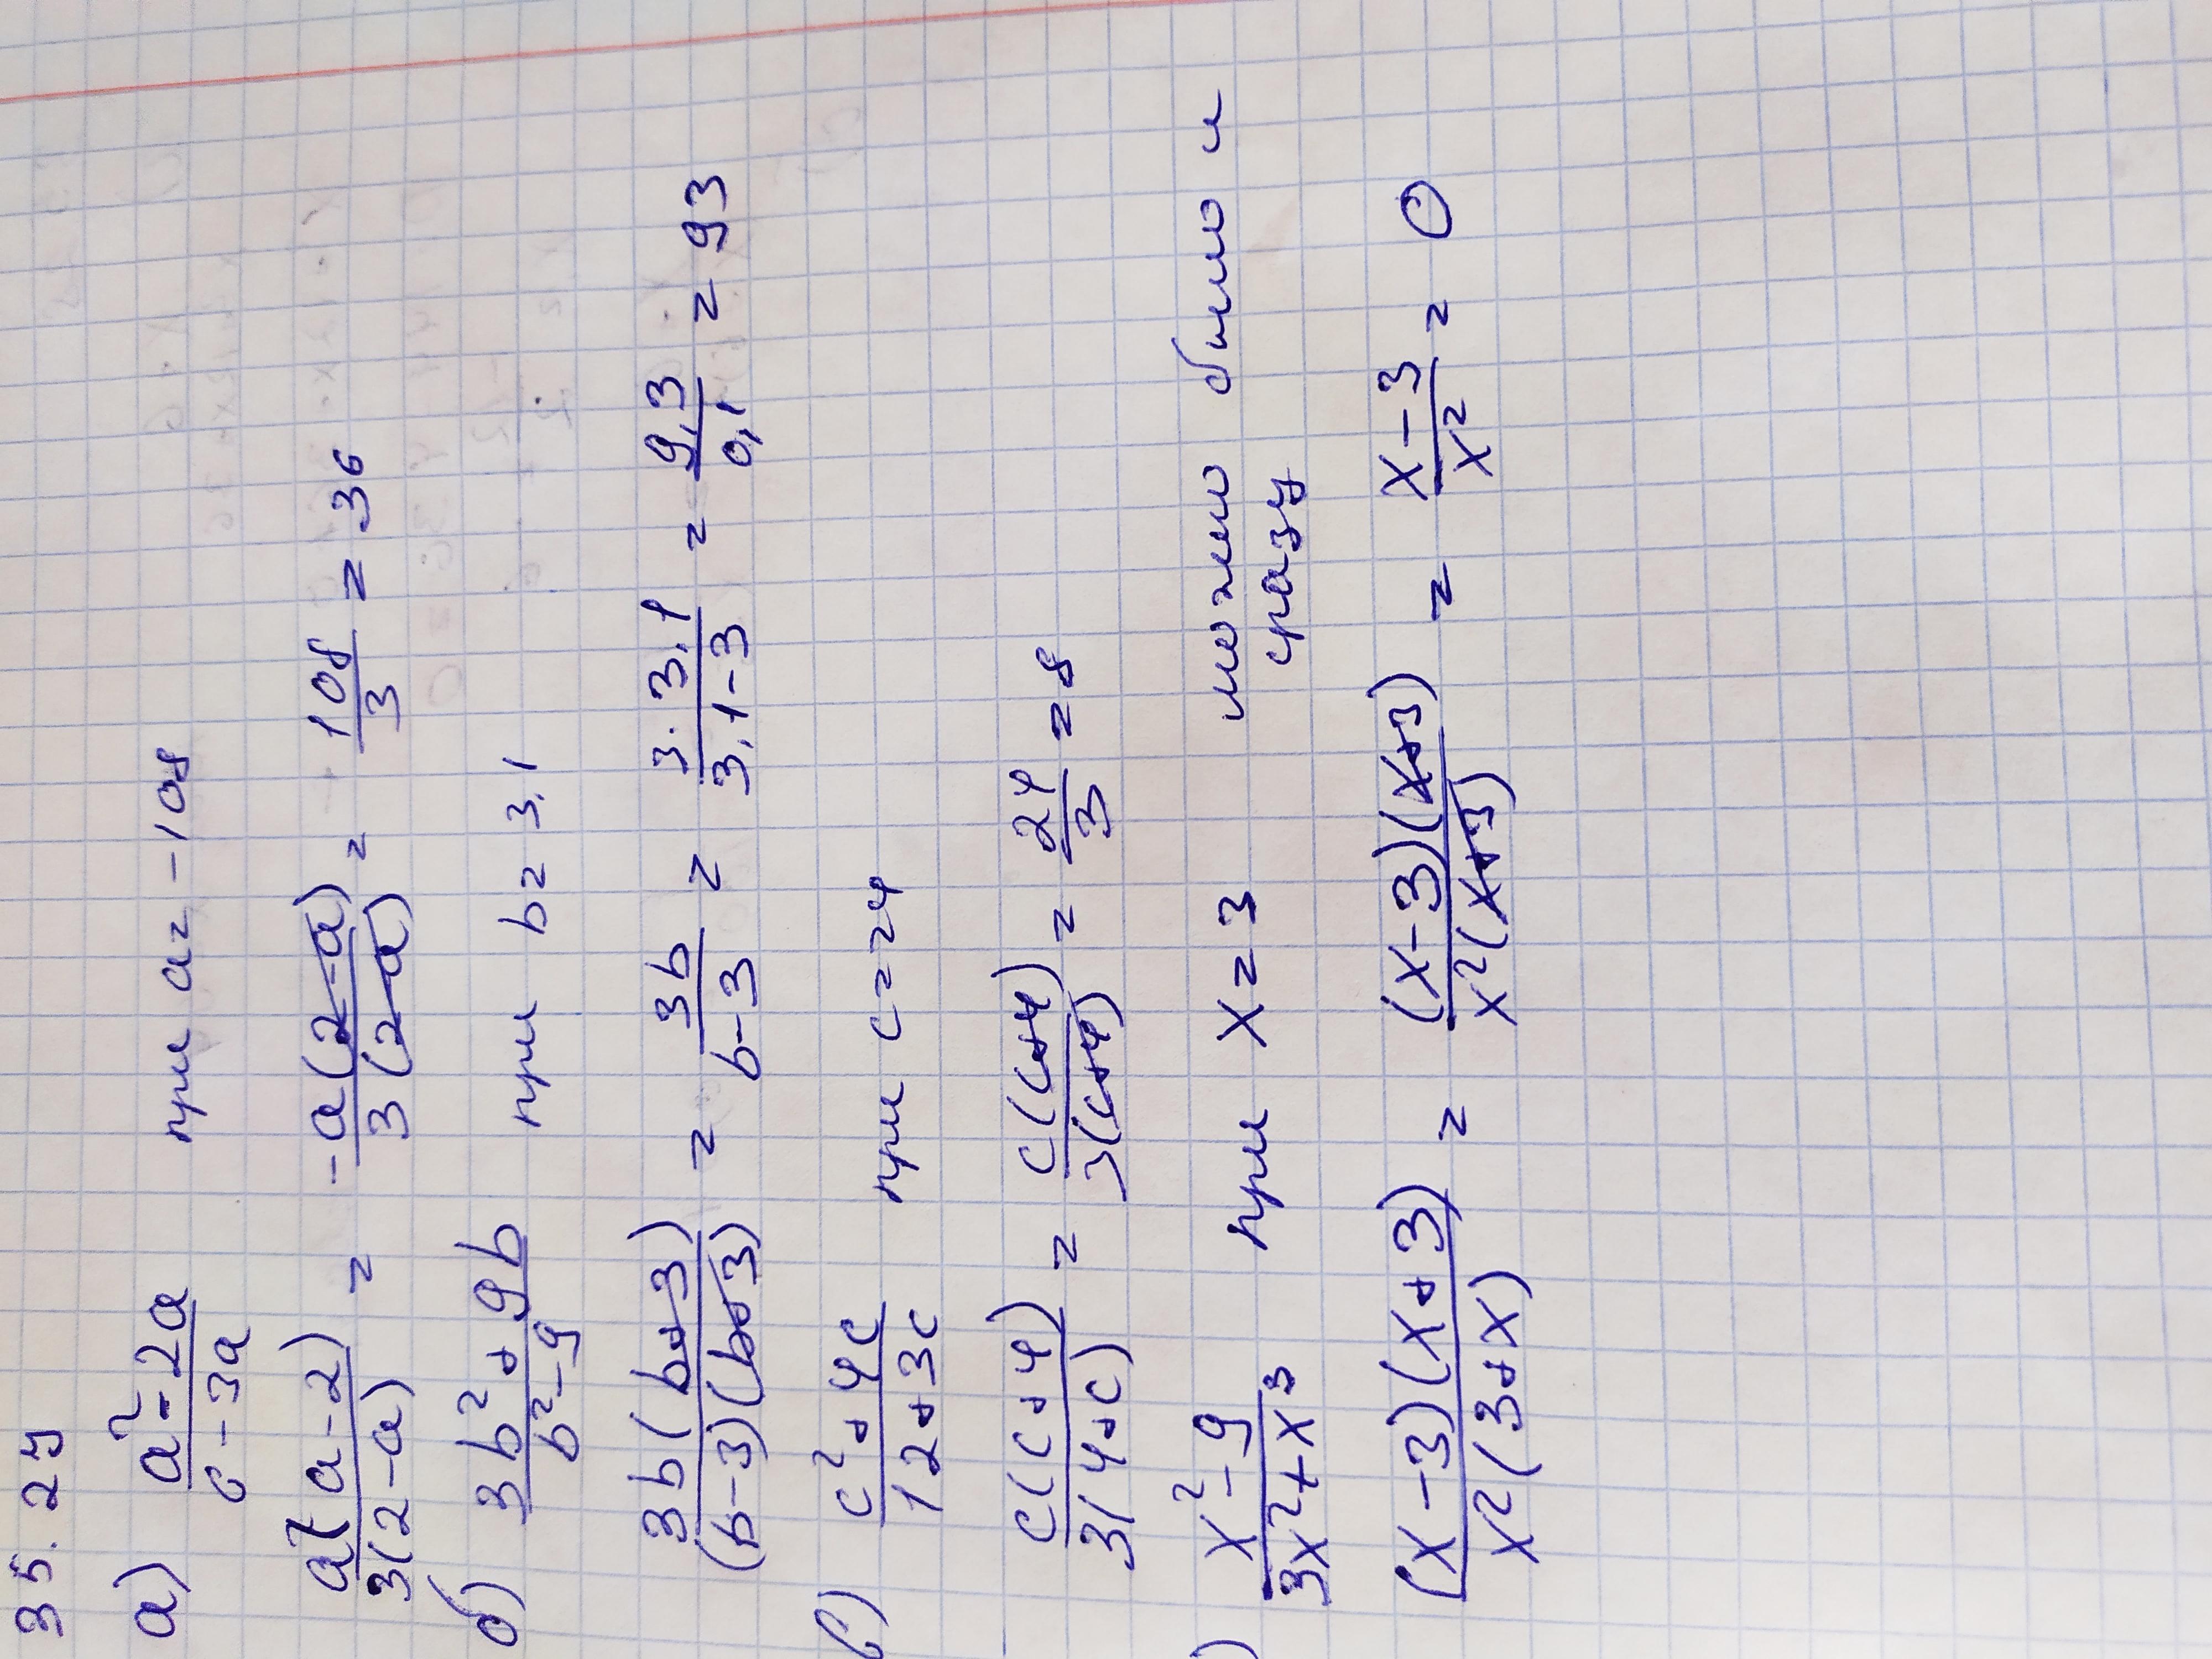 35.27
а) (a² - 2a)/(6 - 3a) при a = -108
a(a - 2)/3(2 - a) = -a(2 - a)/3(2 - a) = 108/3 = 36
б) (3b² + 9b)/(b² - 9) при b = 3,1
3b(b + 3)/(b - 3)(b + 3) = 3b/(b - 3) = 3·3,1/(3,1 - 3) = 9,3/0,1 = 93
в) (c² + 4c)/(12 + 3c) при c = 24
c(c + 4)/3(4 + c) = c(c + 4)/3(c + 4) = 24/3 = 8
) (x² - 9)/(3x² + x³) при x = 3 можно было и
сразу
(x - 3)(x + 3)/x²(3 + x) = (x - 3)(x + 3)/x²(x + 3) = (x - 3)/x² = 0